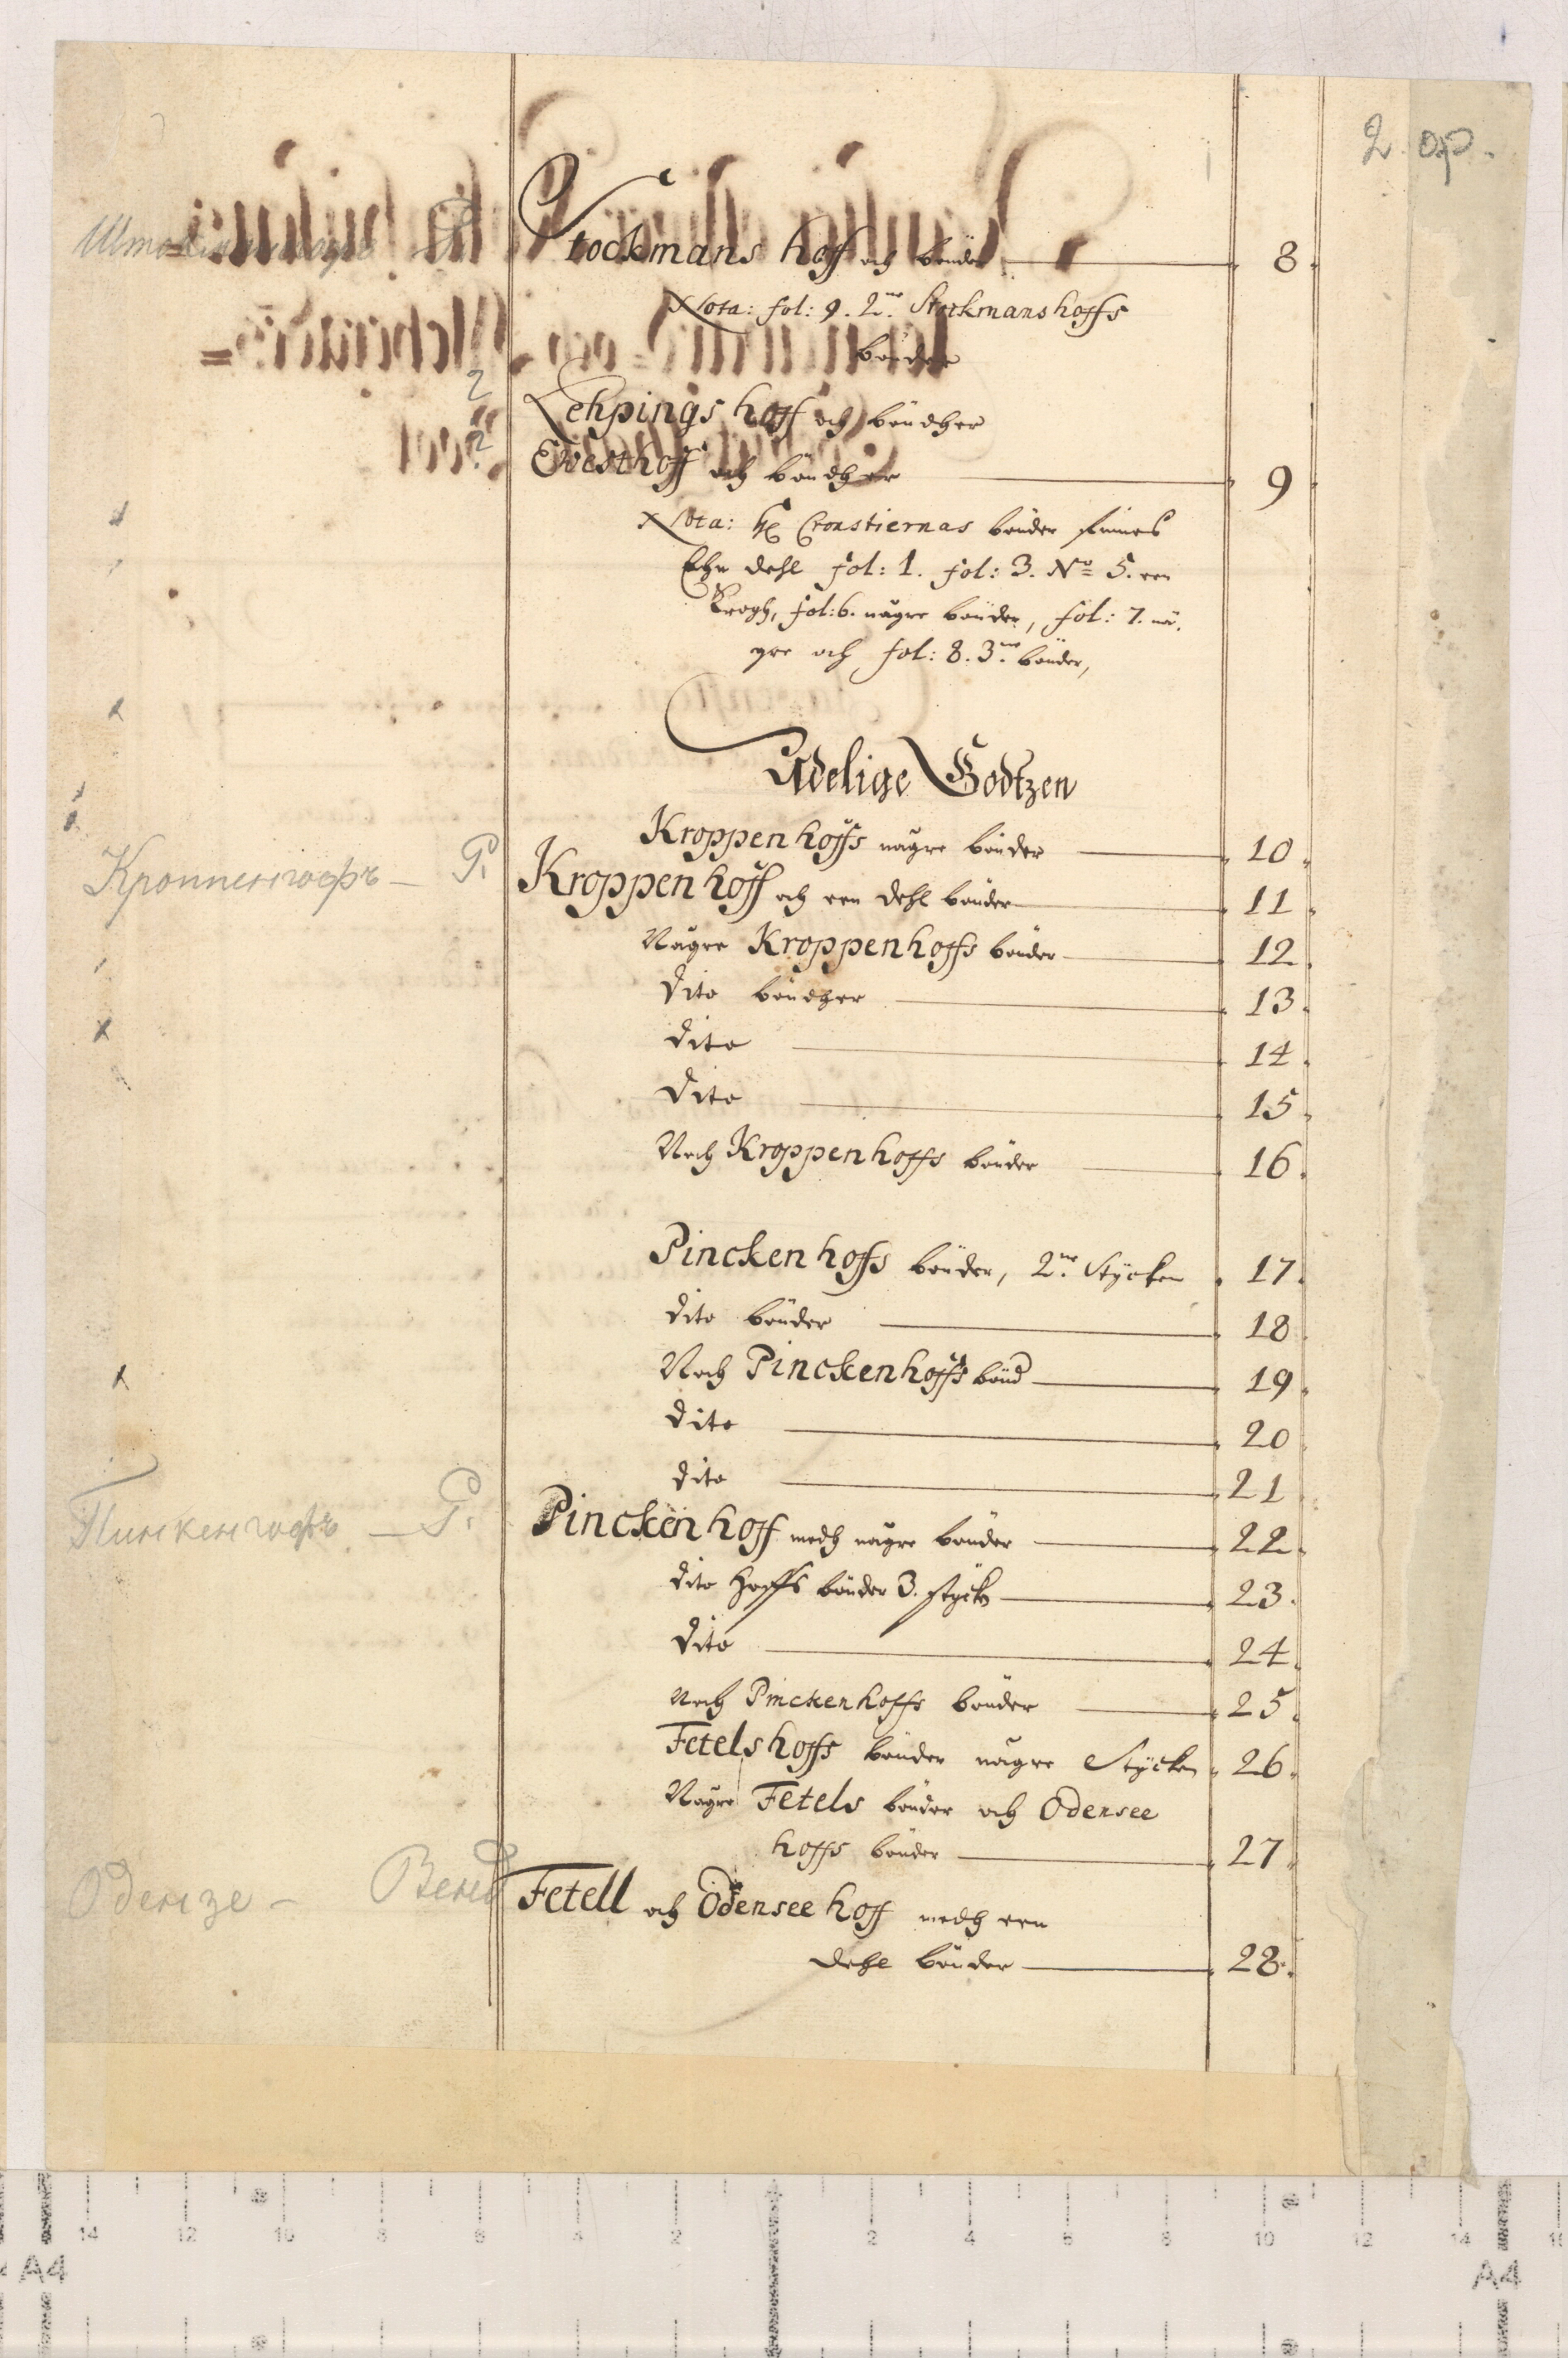 2. ор.
Stockmans hoff och bönder 8.
Nota: fol: 9. 2ne. Stockmanshoffs
bönder
2 Lehpings hoff och böndher
2 Ewesthoff och böndher 9.
Nota: H: Cronstiernas bönder finnes
Ehn dehl fol: 1. fol: 3. No 5. een
Krogh, fol: 6. någre bönder, fol: 7. nå.
gre och fol: 8. 3ne. bönder,
Adelige Godtzen
Kroppenhoffs någre bönder 10.
Кроппенгофъ — Р. Kroppenhoff och een dehl bönder 11.
Någre Kroppenhoffs bönder 12.
Dito böndher 13.
Dito 14.
Dito 15.
Noch Kroppenhoffs bönder 16.
Pinckenhoffs bönder, 2ne. Stycken 17.
Dito bönder 18
Noch Pinckenhoffs bönd 19.
Dito 20
Dito 21
Пинкенгофъ — Р. Pinckenhoff medh någre bönder 22.
Dito hoffs bönder 3. styck 23.
Dito 24.
Noch Pinckenhoffs bönder 25.
Fetelshoffs bönder någre Stycken 26.
Någre Fetels bönder och Odensee
hoffs bönder 27.
Одензе — Венд Fetell och Odensee hoff medh een
dehl bönder 28.
14 12 10 8 6 4 2 2 4 6 8 10 12 14
A4 A4